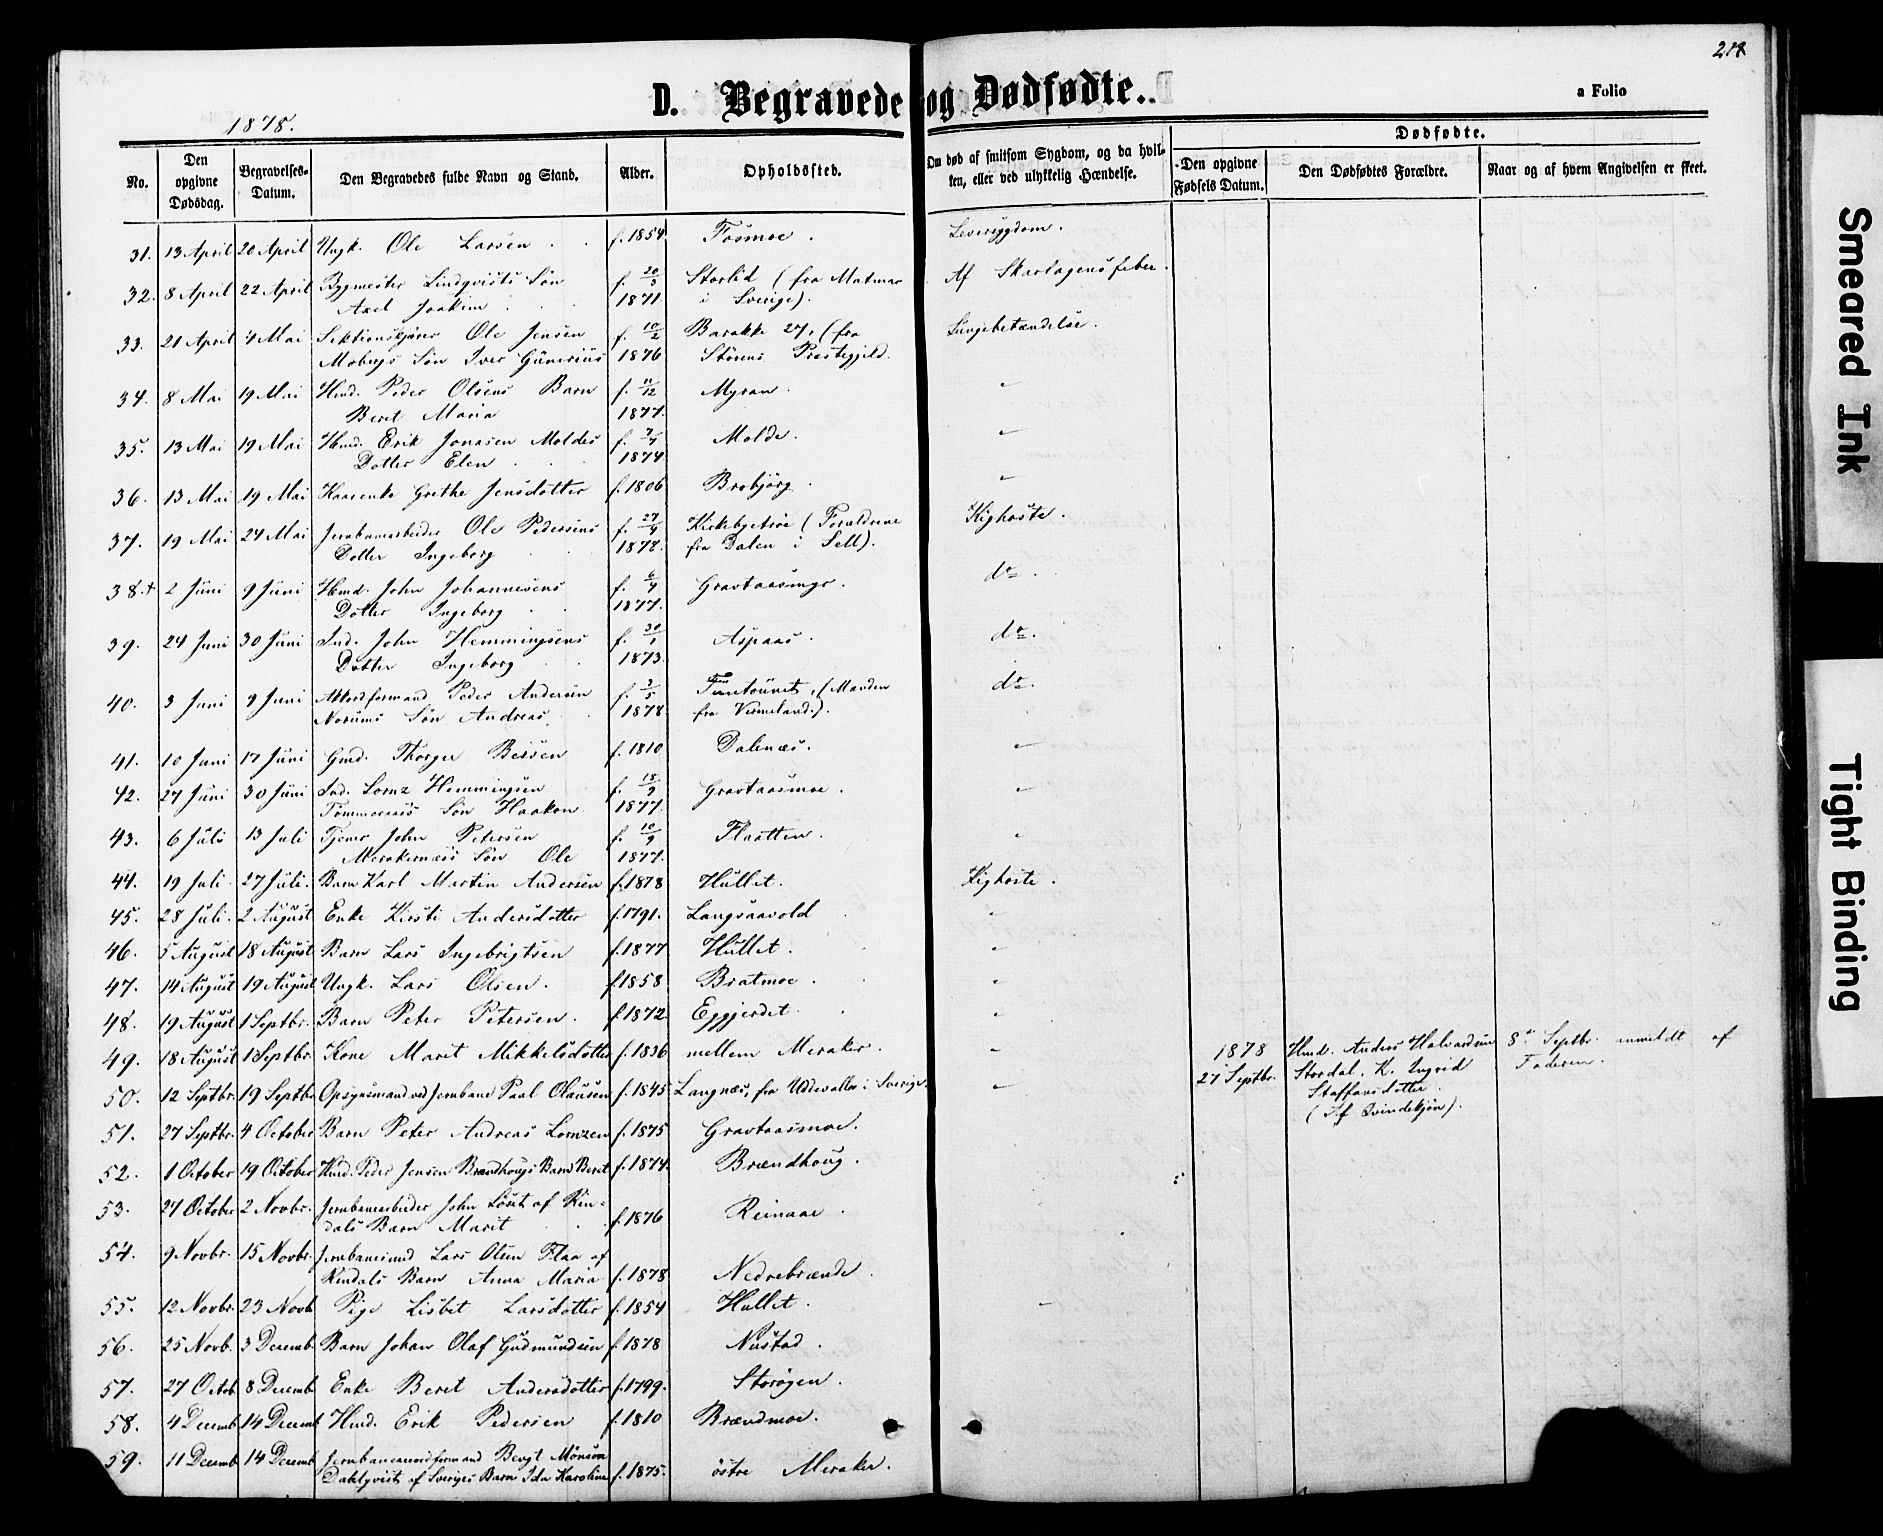 218
D. Begravede og Dødfødte.
a Folio
1878.
No.
Den opgivne Dødsdag.
Begravelses-Datum.
Den Begravedes fulde Navn og Stand.
Alder.
Opholdssted.
Om død af smitsom Sygdom, og da hvilken, eller ved ulykkelig Hændelse.
Dødfødte.
Den opgivne Fødsels Datum.
Den Dødfødtes Forældre.
Naar og af hvem Angivelsen er skeet.
31. 13 April 20 April Ungk. Ole Larsen f. 1854. Fosmoe. Leversygdom.
32. 8 April 22 April Bygmester Lindqvists Søn f. 20/3 Storlid (fra Matmar Af Skarlagensfeber.
Axel Joakim 1871. i Sverige).
33. 21 April 4 Mai Sektionskjører Ole Jensen f. 10/2 Barakke 27, (fra Lungebetændelse.
Mobergs Søn Iver Günerius 1876 Størens Præstegjeld.
34. 8 Mai 19 Mai Hmd. Peder Olsens Barn f. 11/12 Myran. "
Beret Maria 1877.
35. 13 Mai 19 Mai Hmd. Erik Jonasen Moldes f. 7/7 Molde. "
Dotter Elen 1874
36. 13 Mai 19 Mai Karenke Grethe Jensdotter f. 1806 Brobjørg. "
37. 19 Mai 24 Mai Jernbanearbeider Ole Pedersens f. 27/4 Kirkebyetrøe (Forældrene Kighoste.
Dotter Ingeborg 1878. fra Dalen i Sell).
38.+ 2 Juni 9 Juni Hmd. John Johannesens f. 6/4 Gravtaasmyr. do.
Dotter Ingeborg 1877.
39. 24 Juni 30 Juni Ind. John Hemmingsens f. 30/1 Aspaas. do.
Dotter Ingeborg 1873.
40. 3 Juni 9 Juni Akkordformand Peder Andersen f. 2/5 (Manden do.
Norums Søn Andreas. 1878. fra Vermeland).
41. 10 Juni 17 Juni Gmd. Thorger f. 1810 Dalenæs. "
42. 27 Juni 30 Juni Ind. Lornz Hemmingsen f. 18/9 Gravtaasmoe. "
Tømmeraas Søn Haakon 1877.
43. 6 Juli 13 Juli Tjener John Petersen f. 10/9 Flaatten. "
Merakernæss Søn Ole 1877.
44. 19 Juli 27 Juli. Barn Karl Martin Andersen f. 1878 Hullet. Kighoste.
45. 28 Juli. 2 August Enke Kirsti Andersdotter f. 1791. Langsaavold "
46. 5 August 18 August Barn Lars Ingebrigtsen f. 1877 Hullet. "
47. 14 August 19 August Ungk. Lars Olsen. f. 1858 Bratmoe. "
48. 19 August 1 Septbr. Barn Peter Petersen. f. 1872. Eggjerdet. "
49. 18 August 1 Septbr. Kone Marit Mikkelsdotter f. 1836 mellem Meraker. "
1878 Hmd. Anders Halvardsen 8de Septbr. anmeldt af
50. 12 Septbr. 19 Septbr. Opsynsmand ved Jernbane Paal Olausen f. 1845. Langnæs, fra Uddewalla i Sverige. "
27 Septbr. Stordal, K. Ingrid Faderen.
Staffansdotter.
(Af Qvindekjøn).
51. 27 Septbr. 4 October Barn Peter Andreas Lornzen f. 1875 Gravtaasmoe.
52. 1 October 19 October Hmd. Peder Jensen Brændhougs Barn Beret f. 1874. Brændhoug.
53. 27 October 2 Novbr. Jernbanearbeider John Løset af Rin-
dals Barn Marit f. 1876 Reinaae.
54. 9 Novbr. 15 Novbr. Jernbanesmed Lars Olsen Flaa af
Rindals Barn Anna Maria f. 1878 Nedrebrænde.
55. 12 Novbr. 23 Novb Pige Lisbet Larsdotter f. 1854 Hullet. "
56. 25 Novb. 3 Decemb. Barn Johan Olaf Gudmundsen f. 1878 Nustad.
57. 27 Octob 8 Decemb Enke Beret Andersdotter f. 1799. Storøgen.
58. 4 Decemb 14 Decemb Hmd. Erik Pedersen f. 1810 Brændmoe.
59. 11 Decemb 14 Decemb Bengt Mönsson
Dahlqvist af Sveriges Barn Ida Karoline f. 1875. østre Meraker.
Smeared Ink
Tight Binding